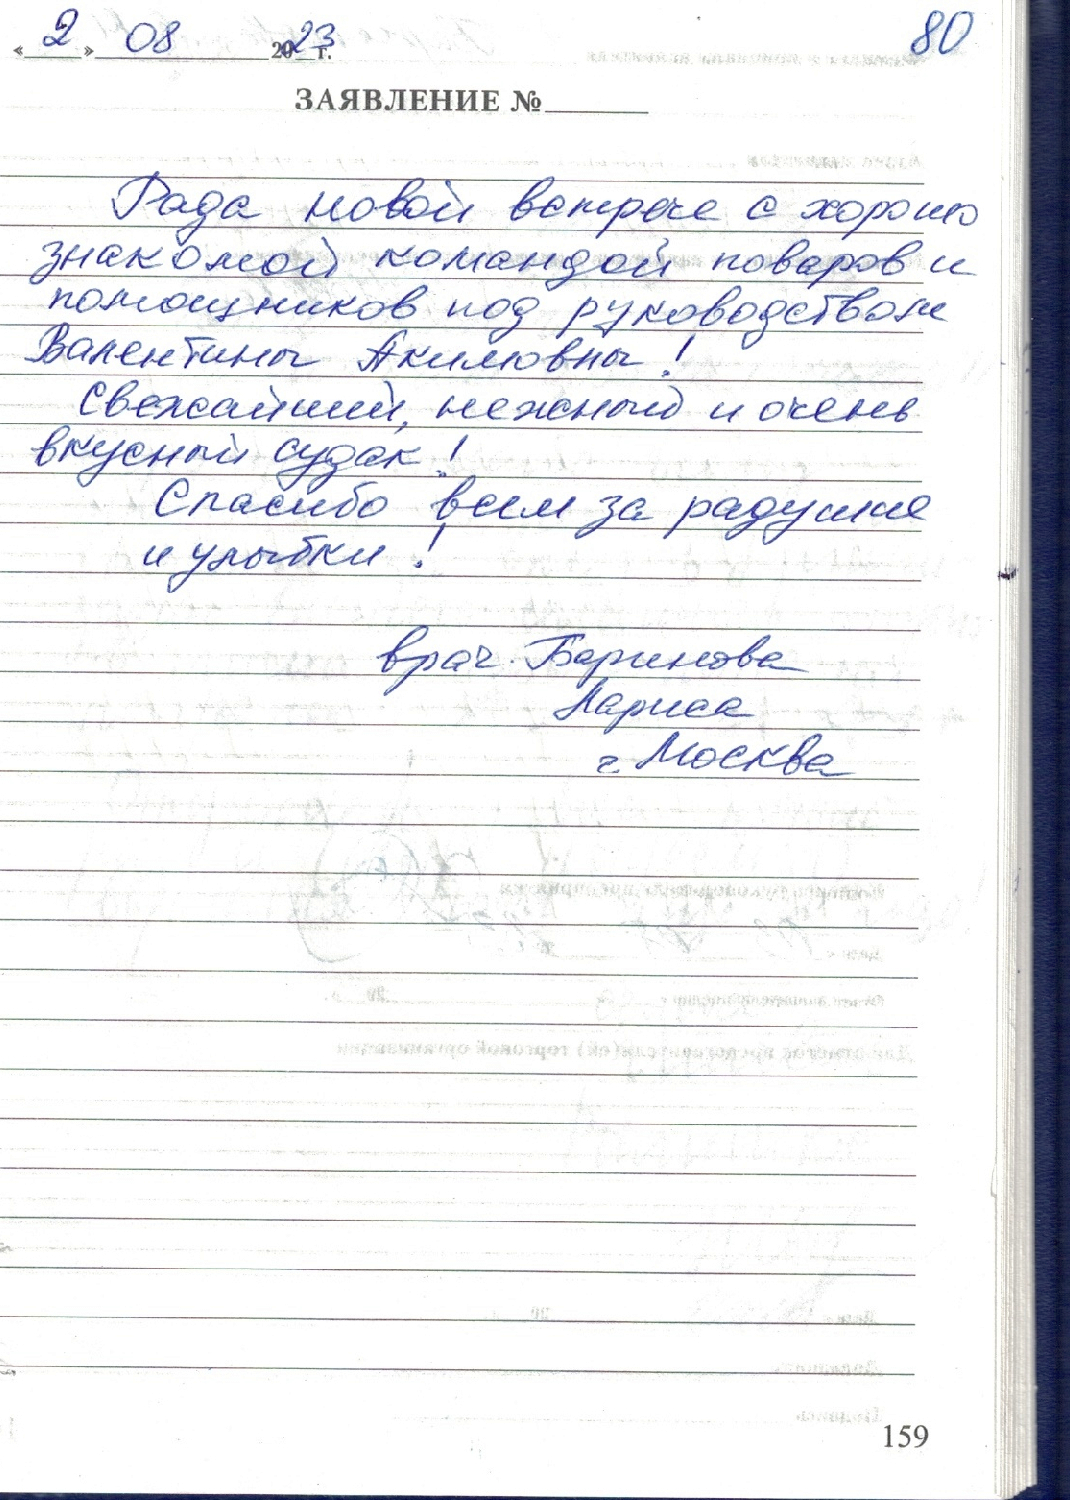 «2» 08 2023 г. 80
ЗАЯВЛЕНИЕ №
Рада новой встрече с хорошо
знакомой командой поваров и
помощников под руководством
Валентины Акимовны!
Свежайший, нежный и очень
вкусный судак!
Спасибо всем за радушие
и улыбки!
врач Баринова
Лариса
г. Москва
159